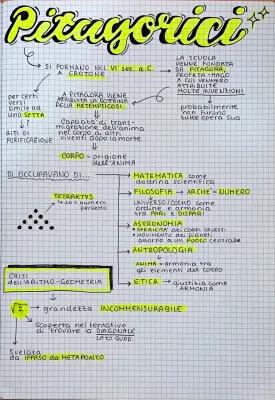 Pitagorici
SI FORMANO NEL VI sec. a.C.
A CROTONE
LA SCUOLA
VENNE FONDATA
DA PITAGORA,
PROFETA-MAGO
A CUI VENNERO
ATTRIBUITE
MOLTE INVENZIONI
probabilmente
non furono
tutte opera sua
per certi
versi
simile ad
una SETTA
RITI DI
PURIFICAZIONE
A PITAGORA VIENE
ATTRIBUITA LA DOTTRINA
DELLA METEMPSICOSI
Capacità di trans-
migrazione dell'anima
nel corpo di altri
viventi dopo la morte
CORPO = prigione
dell'ANIMA
SI OCCUPAVANO DI...
MATEMATICA come
dottrina scientifica
FILOSOFIA → ARCHÈ = NUMERO
UNIVERSO/COSMO come
ordine e armonia
tra PARI e DISPARI
ASTRONOMIA
• SFERICITÀ dei corpi celesti
• MOVIMENTO dei pianeti
attorno a un FUOCO centrale
ANTROPOLOGIA
ANIMA = armonia tra
gli elementi del CORPO
ETICA → giustizia come
ARMONIA
TETRAKTYS
numero
perfetto
CRISI
dell'ARITMO-GEOMETRIA
√2 → grandezza INCOMMENSURABILE
Scoperta nel tentativo
di trovare la DIAGONALE
LATO QUAD.
Svelata
da IPPASO da METAPONTO